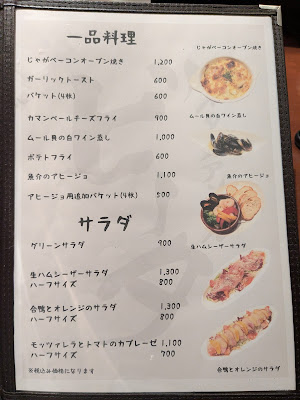 一品料理
じゃがベーコンオーブン焼き 1,200
ガーリックトースト 600
バケット(4枚) 600
カマンベールチーズフライ 900
ムール貝の白ワイン蒸し 1,000
ポテトフライ 600
魚介のアヒージョ 1,100
アヒージョ用追加バケット(4枚) 500
サラダ
グリーンサラダ 900
生ハムシーザーサラダ 1,300
ハーフサイズ 800
合鴨とオレンジのサラダ 1,300
ハーフサイズ 800
モッツァレラとトマトのカプレーゼ 1,100
ハーフサイズ 700
※税込み価格になります
じゃがベーコンオーブン焼き
ムール貝の白ワイン蒸し
魚介のアヒージョ
生ハムシーザーサラダ
合鴨とオレンジのサラダ